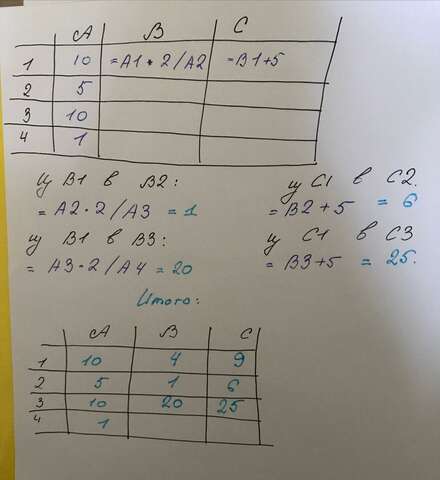 A B C
1 10 =A1*2/A2 =B1+5
2 5
3 10
4 1
из B1 в B2:
= A2*2/A3 = 1
из C1 в C2.
= B2+5 = 6
из B1 в B3:
= A3*2/A4 = 20
из C1 в C3
= B3+5 = 25.
Итого:
A B C
1 10 4 9
2 5 1 6
3 10 20 25
4 1